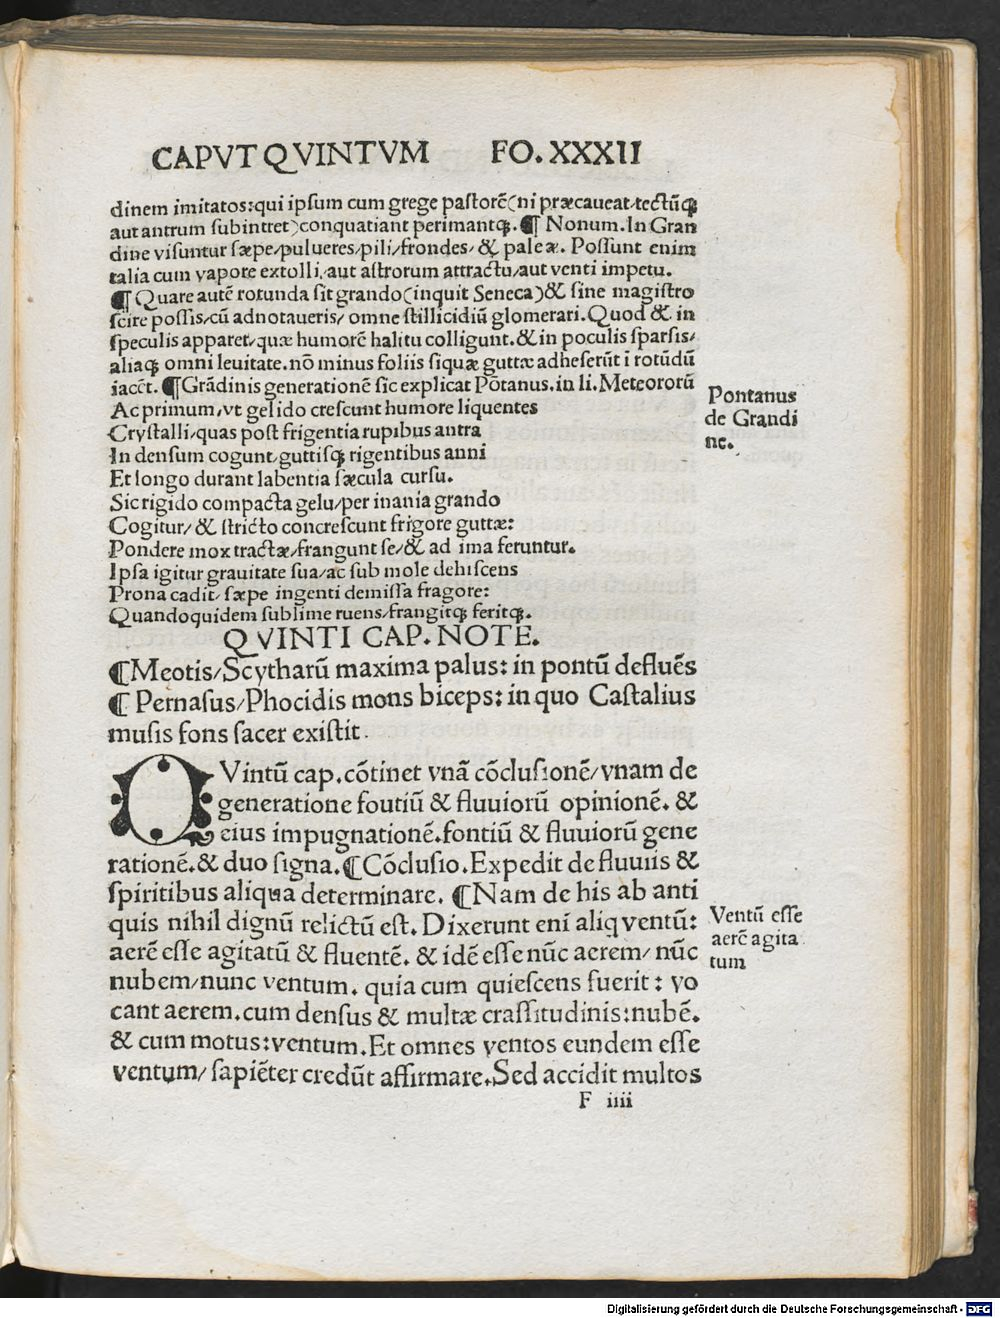 CAPVT QVINTVM FO. XXXII
dinem imitatos:qui ipſum cum grege paſtorē(ni præcaueat/tectūq́;
aut antrum ſubintret)conquatiant perimantq́;. ¶ Nonum. In Gran
dine viſuntur ſæpe/pulueres/pili/frondes/ & paleæ. Poſſunt enim
talia cum vapore extolli/aut aſtrorum attractu/aut venti impetu.
¶ Quare autē rotunda ſit grando(inquit Seneca)& ſine magiſtro
ſcire poſſis/cū adnotaueris/ omne ſtillicidiū glomerari. Quod & in
ſpeculis apparet/quæ humorē halitu colligunt. & in poculis ſparſis/
aliaq́; omni leuitate. nō minus foliis ſiquæ guttæ adheſerūt ī rotūdū
iacēt. ¶ Grādinis generationē ſic explicat Pōtanus. in li. Meteororū
Pontanus
de Grandi
ne.
Ac primum/vt gelido creſcunt humore liquentes
Cryſtalli/quas poſt frigentia rupibus antra
In denſum cogunt/guttiſq́; rigentibus anni
Et longo durant labentia ſæcula curſu.
Sic rigido compacta gelu/per inania grando
Cogitur/ & ſtricto concreſcunt frigore guttæ:
Pondere mox tractæ/frangunt ſe/& ad ima feruntur.
Ipſa igitur grauitate ſua/ac ſub mole dehiſcens
Prona cadit/ ſæpe ingenti demiſſa fragore:
Quandoquidem ſublime ruens/frangitq́; feritq́;.
QVINTI CAP. NOTE.
¶ Meotis/Scytharū maxima palus: in pontū defluēs
¶ Pernaſus/Phocidis mons biceps: in quo Caſtalius
muſis fons ſacer exiſtit.
QVintū cap. cōtinet vnā cōcluſionē/vnam de
generatione foutiū & fluuiorū opinionē. &
eius impugnationē. fontiū & fluuiorū gene
rationē. & duo ſigna. ¶ Cōcluſio. Expedit de fluuiis &
ſpiritibus aliqua determinare. ¶ Nam de his ab anti
quis nihil dignū relictū eſt. Dixerunt enī aliq ventū:
Ventū eſſe
aerē agita
tum
aerē eſſe agitatū & fluentē. & idē eſſe nūc aerem/ nūc
nubem/nunc ventum. quia cum quieſcens fuerit: vo
cant aerem. cum denſus & multæ craſſitudinis: nubē.
& cum motus: ventum. Et omnes ventos eundem eſſe
ventum/ ſapiēter credūt affirmare. Sed accidit multos
F iiii
Digitalisierung gefördert durch die Deutsche Forschungsgemeinschaft - DFG